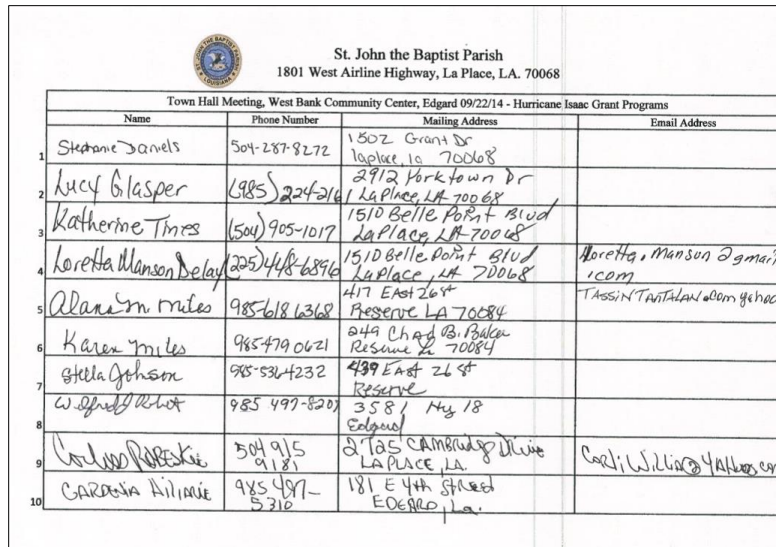 St. John the Baptist Parish
1801 West Airline Highway, La Place, LA. 70068
Town Hall Meeting, West Bank Community Center, Edgard 09/22/14 - Hurricane Isaac Grant Programs
Name Phone Number Mailing Address Email Address
1 Stephanie Daniels 504-287-8272 1502 Grant Dr
laplace, la 70068
2 Lucy Glasper (985) 224-2161 2912 Yorktown Dr
LaPlace, LA 70068
3 Katherine Tines (504) 905-1017 1510 Belle Point Blvd
LaPlace, LA 70068
4 Loretta Manson Delay (225) 448-6896 1510 Belle Point Blvd Loretta.manson@gmail
LaPlace, LA 70068 .com
5 Alana M. Miles 985-618 6368 417 East 26 St
Reserve LA 70084
6 Karen Miles 985-479 0621 249 Chad B. Baker
Reserve La 70084
7 Stella Johnson 985-536-4232 439 East 26 St
Reserve
8 985 497-8207 3581 Hy 18
Edgard
9 504 915 2725 Cambridge Drive
9181 LAPLACE, LA.
10 GARDENIA 985 497- 181 E 4th Street
5310 EDGARD, La.